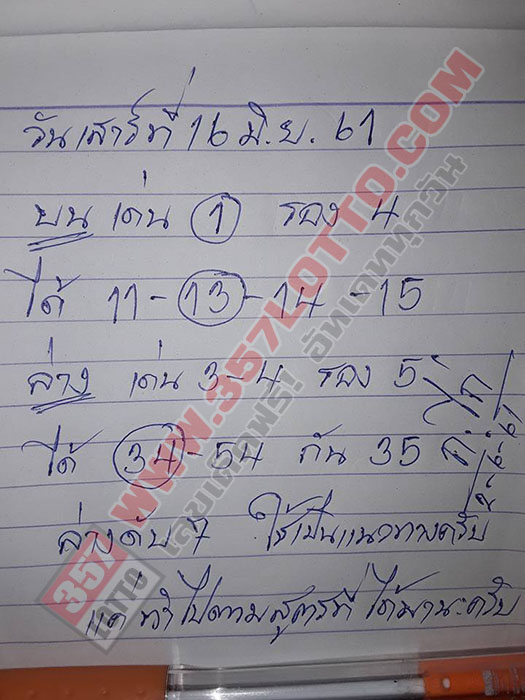 วันเสาร์ที่ 16 มิ.ย. 61
บน เด่น 1 รอง 4
ได้ 11-13-14-15
ล่าง เด่น 3-4 รอง 5
ได้ 34-54 กัน 35
ล่างดับ 7 ใช้เป็นแนวทางครับ
แค่ทำไปตามสูตรที่ได้มานะครับ
WWW.357LOTTO.COM
เลขเด็ดฟรี! อัพเดททุกวัน
357
LOTTO